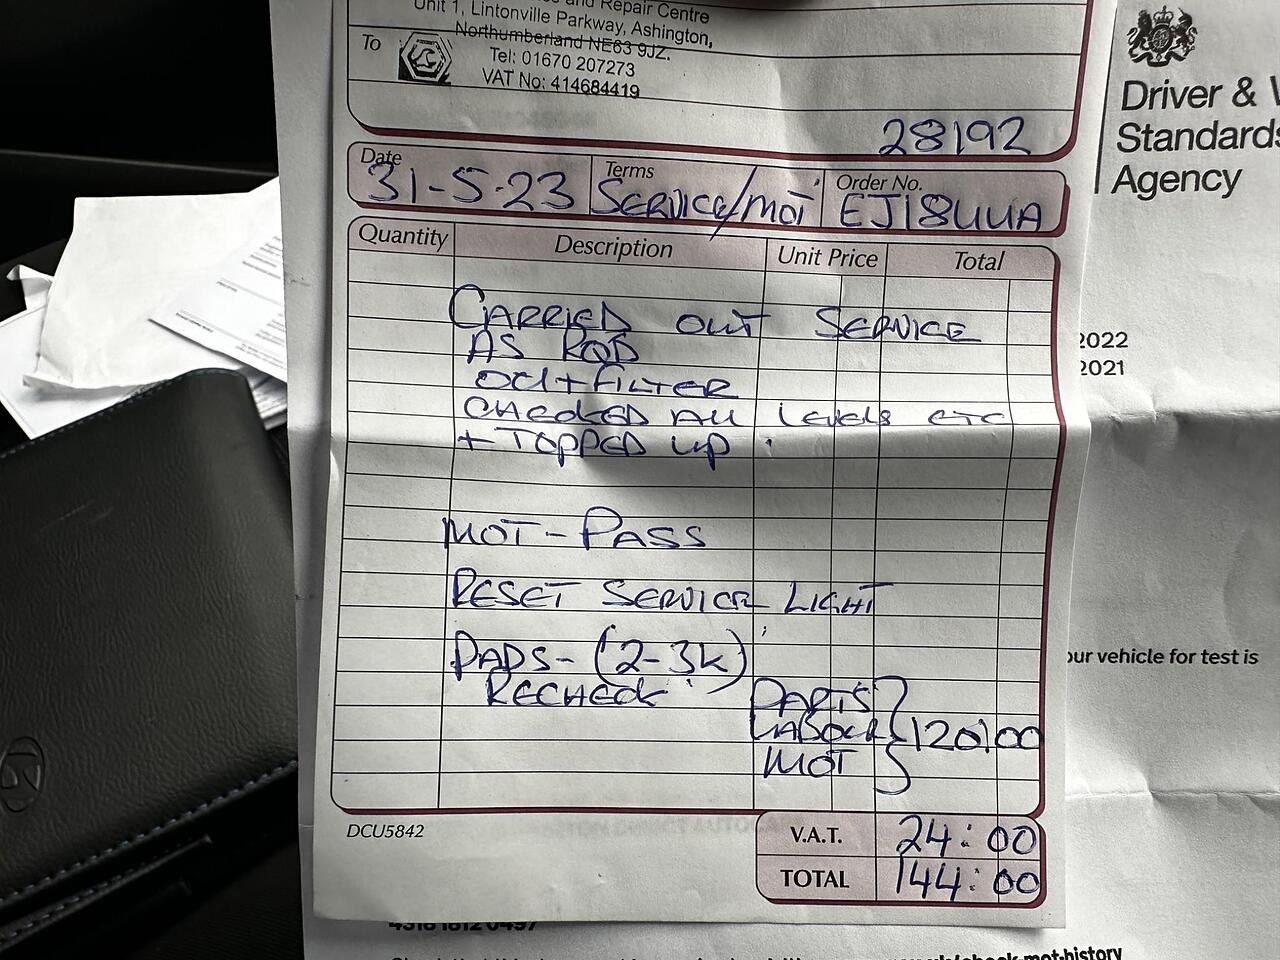 and Repair Centre
Unit 1, Lintonville Parkway, Ashington,
Northumberland NE63 9JZ.
To
Tel: 01670 207273
VAT No: 414684419
28192
Date
31-5-23
Terms
SERVICE/MOT
Order No.
EJ18UUA
Quantity Description Unit Price Total
CARRIED OUT SERVICE
AS RQD
OIL + FILTER
CHECKED ALL LEVELS ETC
+ TOPPED UP
MOT - PASS
RESET SERVICE LIGHT
PADS - (2-3K)
RECHECK
PARTS
LABOUR 120.00
MOT
DCU5842
V.A.T. 24:00
TOTAL 144:00
Driver &
Standards
Agency
2022
2021
our vehicle for test is